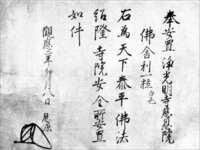 奉安置浄光明寺慈恩院
佛舎利一粒白色
右為天下泰平佛法
紹隆寺院安全所安置
如件
觀應年月八日